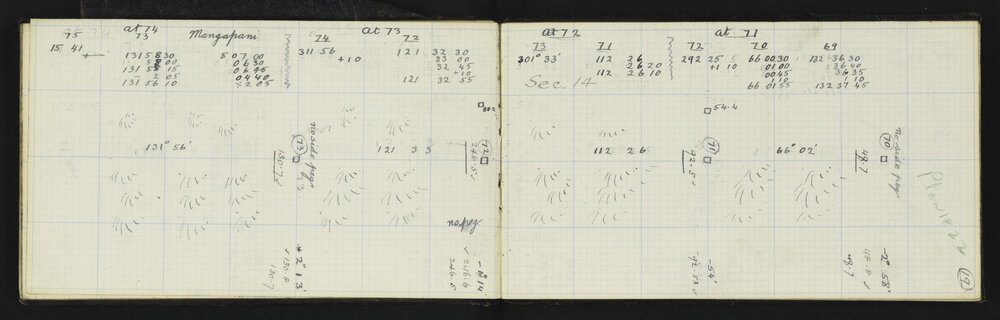 at 74
75 73 Mangapani
15 41
131 58 30 5 07 00
58 00 06 30
131 55 15 06 45
2 05 04 40
131 56 10 + 2 05
at 73
74 72
311 56 121 32 30
+ 10 33 00
32 45
+ 10
121 32 55
131° 56'
121 33
73
no side pegs
130.7
72
246.5
no peg
+ 2° 13'
130.8
130.7
- 4° 14'
246.6
246.5
at 72
73 71
301° 33' 112 26
26 20
112 26 10
Sec. 14
at 71
72 70 69
292 25 5 66 00 30 132 36 30
+1 10 01 00 36 40
00 45 36 35
1 10 1 10
66 01 55 132 37 45
54.4
112 26
66° 02'
71
92.5
70
no side peg
48.7
-54'
92.53
-2° 58'
48.8
48.7
Plan
19